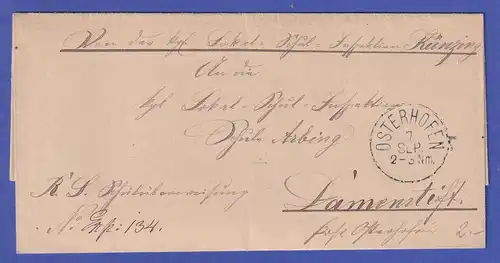 Von der kgl. Lokal-Schul-Inspektion Künzing
An die
kgl Lokal-Schul-Inspektion
Schule Arbing
OSTERHOFEN
7
SEP.
2-3 Nm.
R. S. Schulüberweisung
Damenstift.
No Exp: 134.
Post Osterhofen